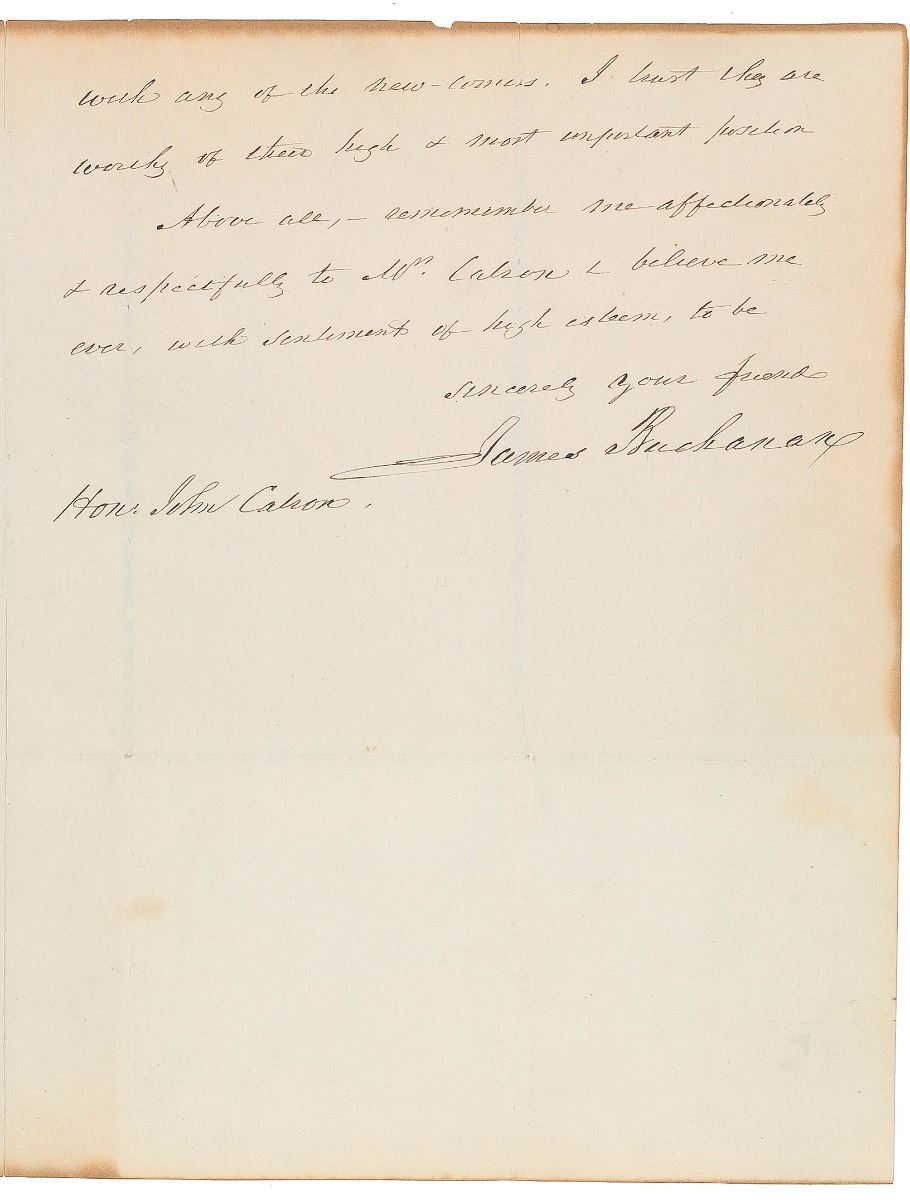 with any of the new-comers. I trust they are
worthy of their high & most important position
Above all, – rememember me affectionately
& respectfully to Mrs. Catron & believe me
ever, with sentiment of high esteem, to be
sincerely your friend
James Buchanan
Hon: John Catron.